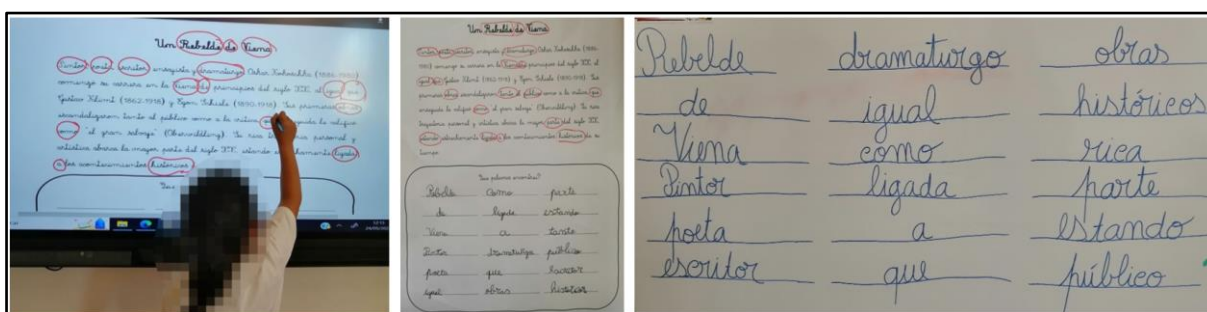 Un Rebelde de Viena
Pintor, poeta, escritor, ensayista y dramaturgo Oskar Kokoschka (1886-1980)
comenzó su carrera en la Viena de principios del siglo XX, al igual que
Gustav Klimt (1862-1918) y Egon Schiele (1890-1918). Sus primeras
escandalizaron tanto al público como a la crítica, que
como "el gran salvaje" (Oberwildling). Su rica personal y
artística abarca la mayor parte del siglo XX, estando ligada
a los acontecimientos históricos
Un Rebelde de Viena
Pintor, poeta, escritor, ensayista y dramaturgo Oskar Kokoschka (1886-
1980) comenzó su carrera en la Viena de principios del siglo XX, al
igual que Gustav Klimt (1862-1918) y Egon Schiele (1890-1918). Sus
primeras obras escandalizaron tanto al público como a la crítica, que
como "el gran salvaje" (Oberwildling). Su rica
trayectoria personal y artística abarca la mayor parte del siglo XX,
estando ligada a los acontecimientos históricos de su
tiempo.
¿Qué palabras encontraste?
Rebelde como parte
de ligada estando
Viena a tanto
Pintor dramaturgo público
poeta que
igual obras
Rebelde dramaturgo obras
de igual históricos
Viena como rica
Pintor ligada parte
poeta a estando
escritor que público